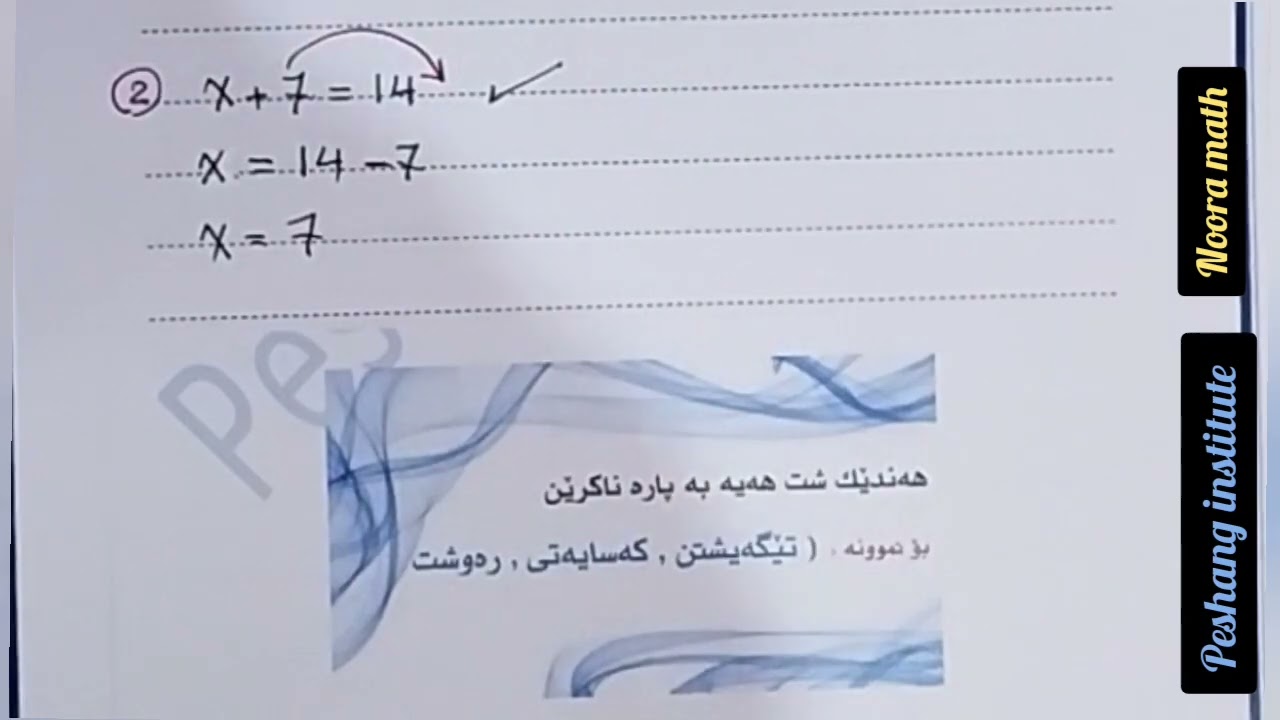 ② x + 7 = 14 ✓
x = 14 - 7
x = 7
Pe
هەندێك شت هەیە بە پارە ناکرێن
بۆ نموونە : ( تێگەیشتن , کەسایەتی , رەوشت
Noora math
Peshang institute